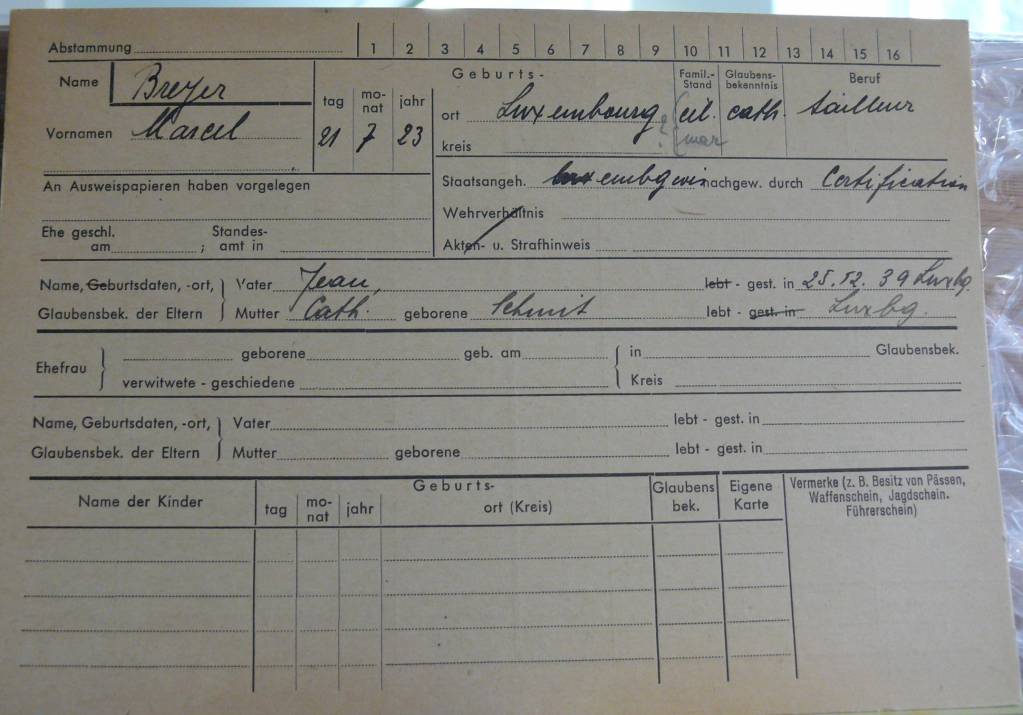 Abstammung 1 2 3 4 5 6 7 8 9 10 11 12 13 14 15 16
Name Breyer Geburts- Famil.-Stand Glaubensbekenntnis Beruf
tag monat jahr ort Luxembourg cel. cath. tailleur
Vornamen Marcel 21 7 23 kreis ? mar
An Ausweispapieren haben vorgelegen Staatsangeh. nachgew. durch Certification
Wehrverhältnis
Ehe geschl. am ; Standesamt in Akten- u. Strafhinweis
Name, Geburtsdaten, -ort, Vater Jean, lebt - gest. in 25.12.39 Luxbg.
Glaubensbek. der Eltern Mutter Cath. geborene Schmit lebt - gest. in Luxbg.
Ehefrau geborene geb. am in Glaubensbek.
verwitwete - geschiedene Kreis
Name, Geburtsdaten, -ort, Vater lebt - gest. in
Glaubensbek. der Eltern Mutter geborene lebt - gest. in
Name der Kinder Geburts- Glaubens bek. Eigene Karte Vermerke (z. B. Besitz von Pässen,
tag monat jahr ort (Kreis) Waffenschein, Jagdschein.
Führerschein)